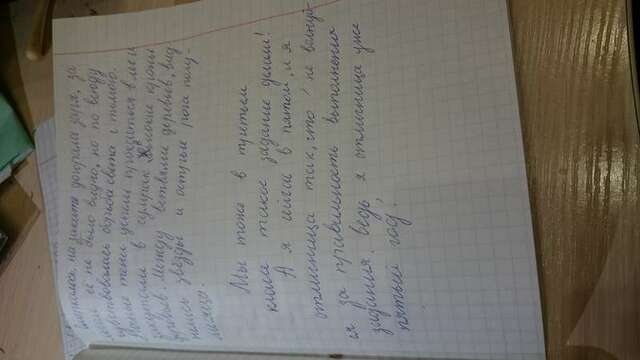 Смеркалось, на закате догорала заря, за
лесом её не было видно, но по всюду
чувствовалась борьба света с тьмою.
тени успели прокрасться в лес и
закутали в сумрак высокие кроны
деревьев. Между ветвями деревьев, вид-
нелись звёзды и острые рога полу-
месяца.
Мы тоже в третьем
класе такое задание делали!
А я сейчас в пятом, и я
отличница так, что не волнуй-
ся за правильность выполнения
задания, ведь я отличница уже
пятый год!